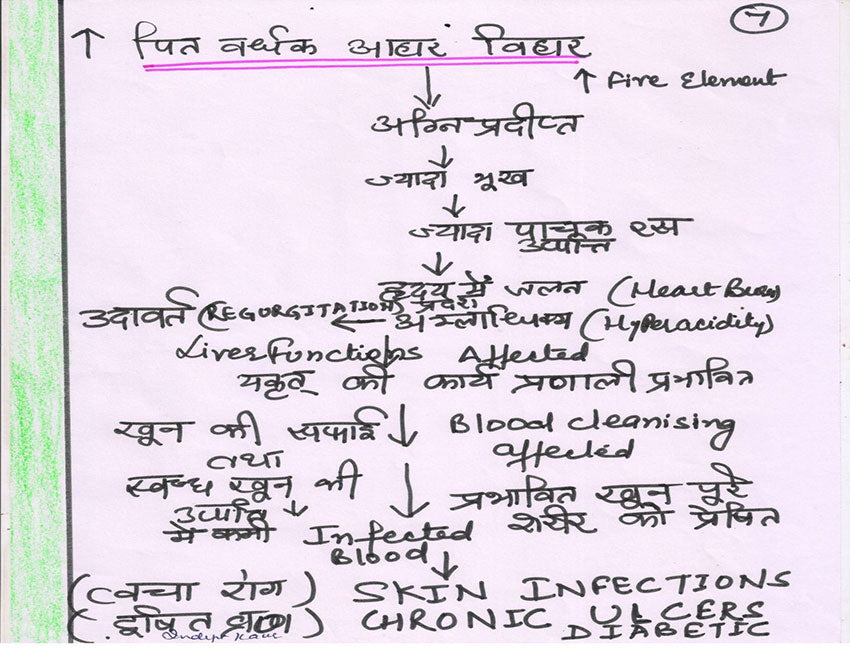 7
↑ पित वर्धक आहार विहार
↑ Fire Element
अग्नि प्रदीप्त
ज्यादा भूख
ज्यादा पाचक रस
उत्पत्ति
हृदय प्रदेश में जलन (Heart Burn)
उदावर्त (REGURGITATION) ← अम्लाधिक्य (Hyperacidity)
Liver Functions Affected
यकृत् की कार्य प्रणाली प्रभावित
खून की सफाई Blood Cleanising
तथा affected
स्वच्छ खून की प्रभावित खून पूरे
उत्पत्ति ↓ शरीर को प्रेषित
में कमी Infected
Blood
(त्वचा रोग) SKIN INFECTIONS
(दूषित व्रण) CHRONIC ULCERS
DIABETIC